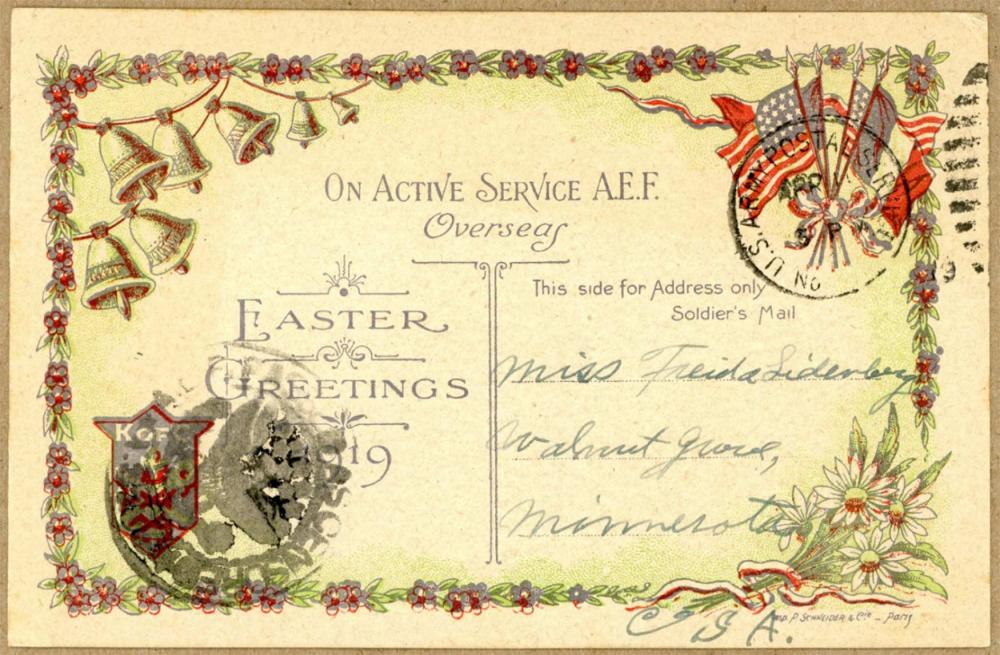 On Active Service A.E.F.
Overseas
Easter
Greetings
1919
This side for Address only
Soldier's Mail
Miss Freida Lidenberg
Walnut Grove,
Minnesota
U.S.A.
U.S. ARMY POSTAL SERVICE
APR
5 P
No
19
K OF C
P. Schneider & Cie - Paris